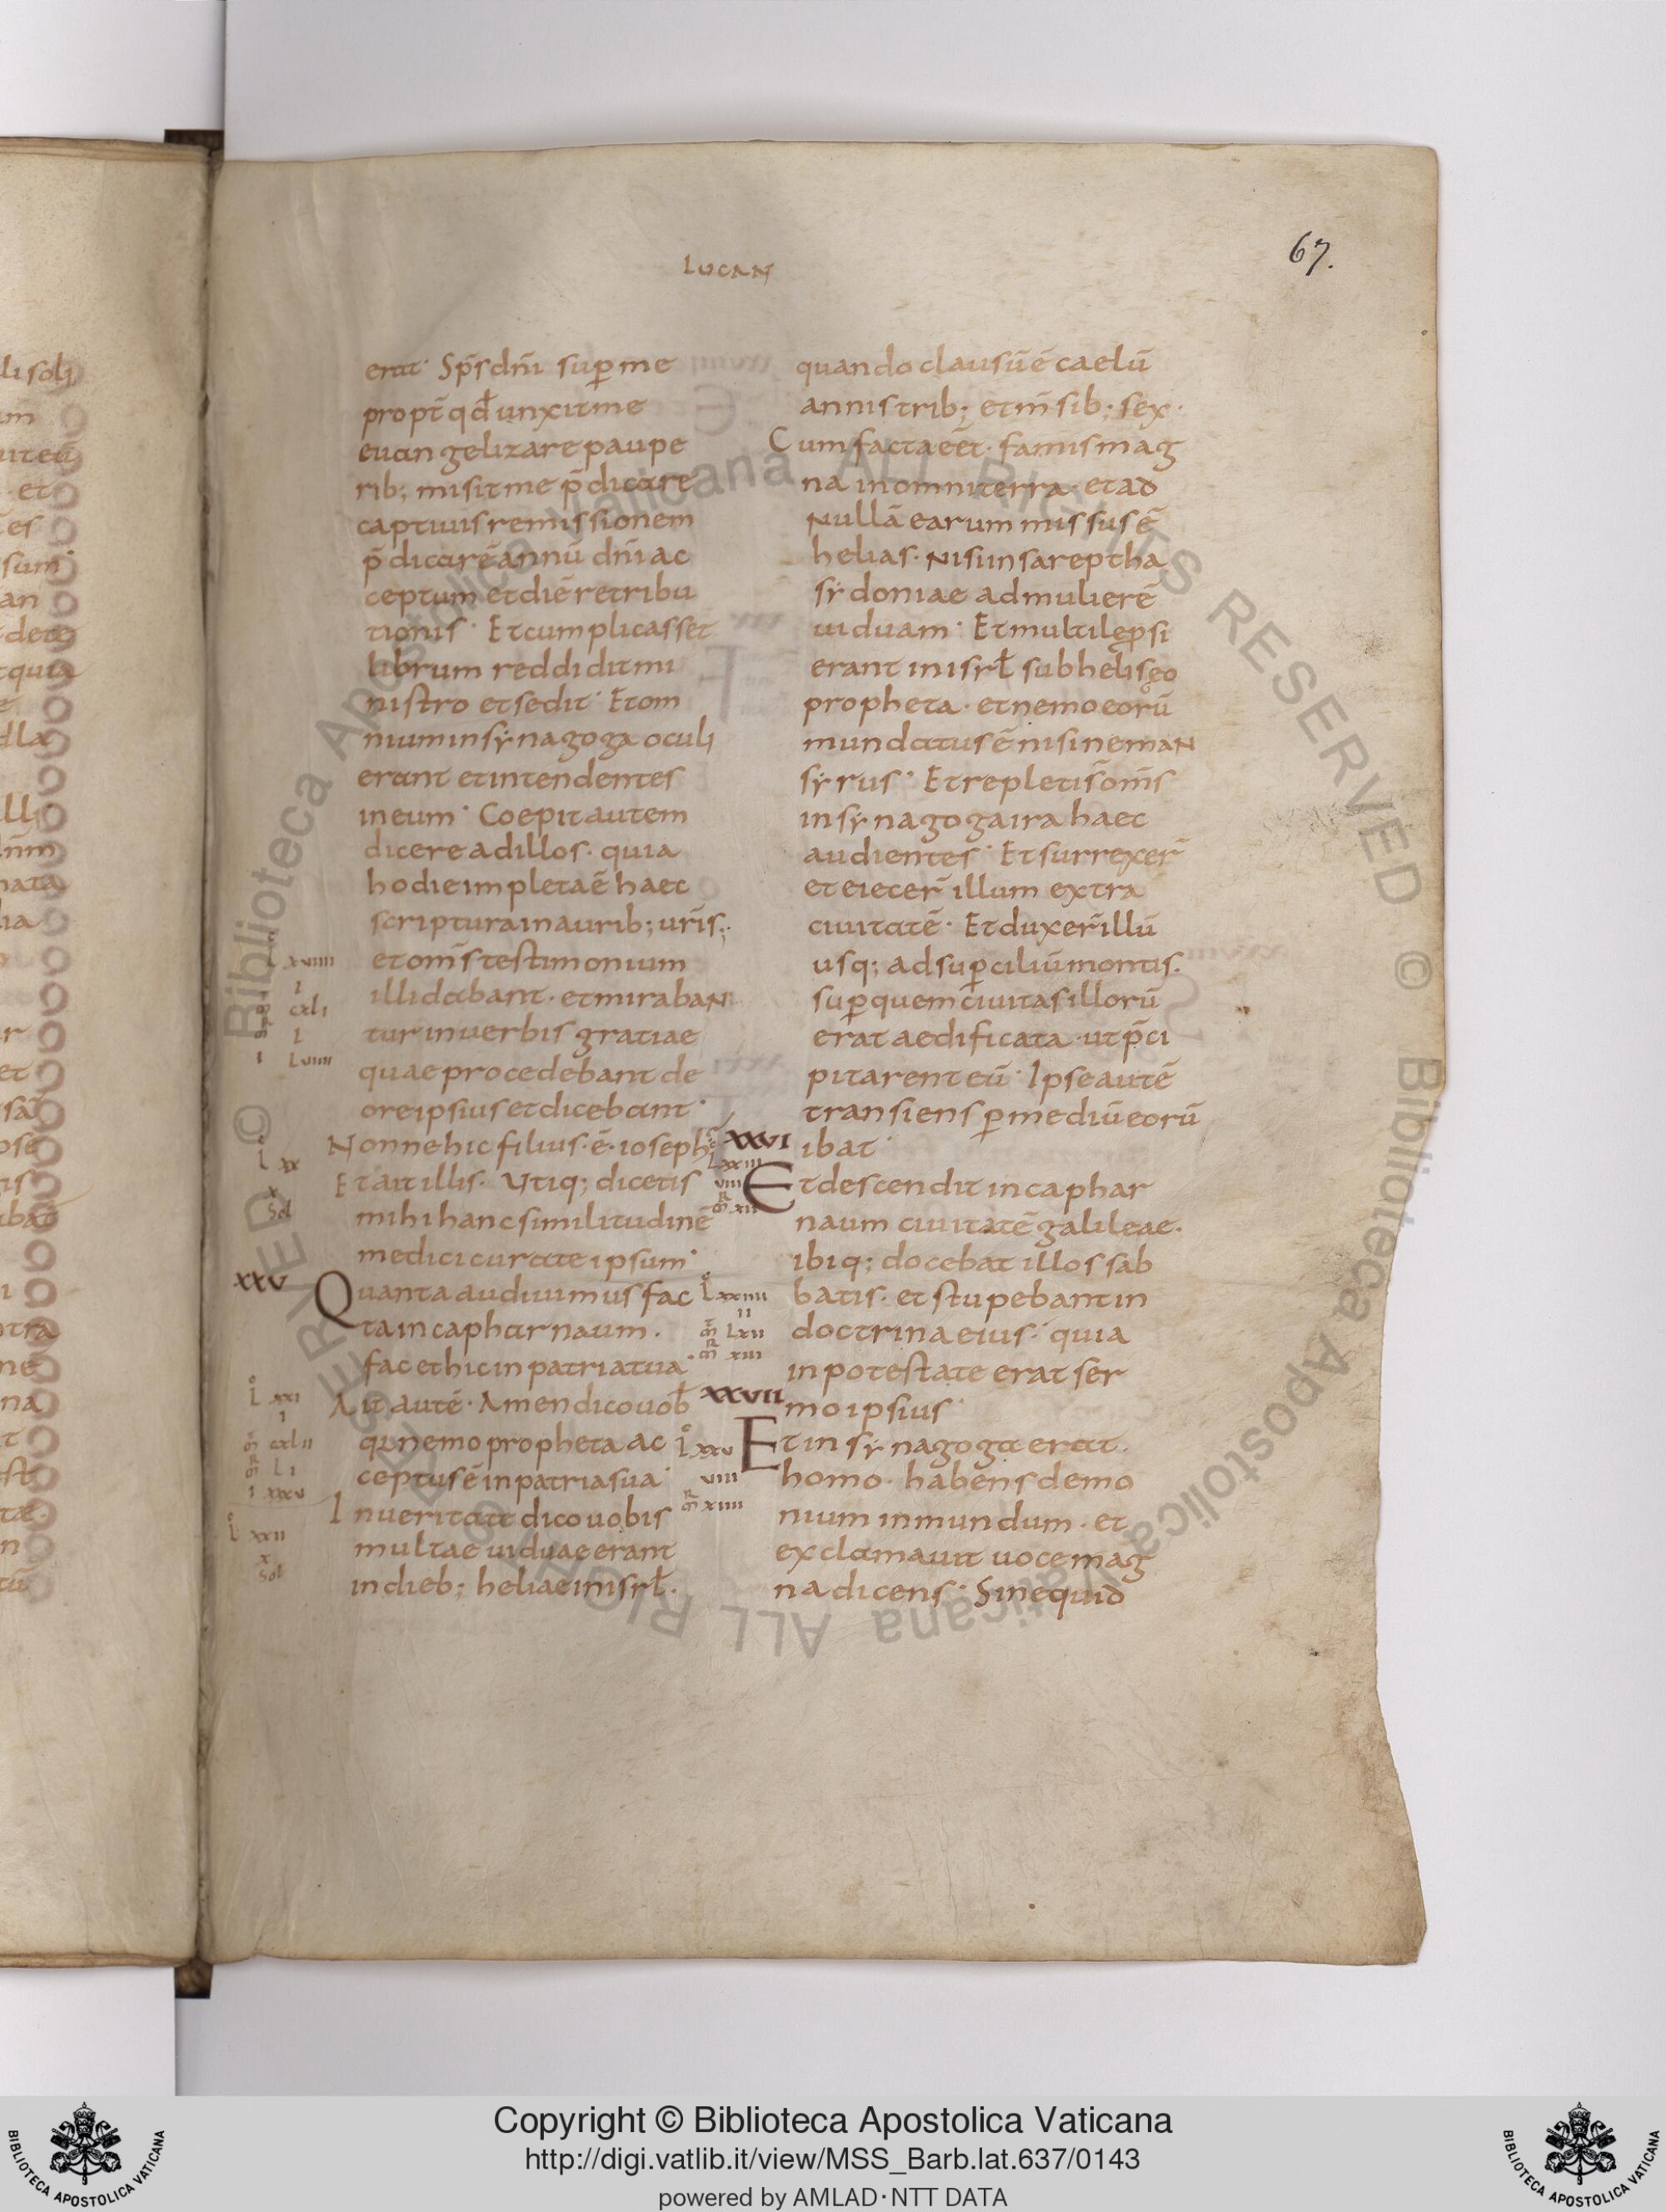 LUCAN
67.
erat· Sp̄s dn̄i sup̄ me
propt̄ qđ unxit me
euangelizare paupe
rib; misit me p̄dicare
captiuis remissionem
p̄dicarē annū dn̄i ac
ceptum et diē retribu
tionis· Et cum plicasset
librum reddidit mi
nistro et sedit· Et om
nium in sẏnagoga oculi
erant et intendentes
in eum· Coepit autem
dicere ad illos· quia
hodie impleta ē haec
scriptura in aurib; ur̄is;
et om̄s testimonium
illi dabant· et miraban
tur in uerbis gratiae
quae procedebant de
ore ipsius et dicebant·
Nonne hic filius·ē·ioseph
Et ait illis· Utiq; dicetis
mihi hanc similitudinē
medici curate ipsum·
Quanta audiuimus fac
ta in capharnaum·
fac et hic in patria tua·
Ait autē· Amen dico uob̄
qꝛ nemo propheta ac
ceptus ē in patria sua·
In ueritate dico uobis
multae uiduae erant
in dieb; heliae in isrł·
lxviiii
i
cxli
i
lviiii
lxx
x
Sol
XXV
lxxi
i
cxlii
li
i xxxv
lxxii
x
Sol
quando clausū ē caelū
annis trib; et m̄sib; sex·
Cum facta eēt· famis mag
na in omni terra· et ad
Nullā earum missus ē
helias· Nisi in sareptha
sẏdoniae ad mulierē
uiduam· Et multi lep̄si
erant in isrł sub heliseo
propheta· et nemo eorū
mundatus ē nisi neman
sẏrus· Et repleti s̄ om̄s
in sẏnagoga ira haec
audientes· Et surrexer̄
et eiecer̄ illum extra
ciuitatē· Et duxer̄ illū
usq; ad sup̄ciliū montis·
sup̄ quem ciuitas illorū
erat aedificata· ut p̄ci
pitarent eū· Ipse autē
transiens p̄ mediū eorū
XXVI ibat·
Et descendit in caphar
naum ciuitatē galileae·
ibiq; docebat illos sab
batis· et stupebant in
doctrina eius·· quia
in potestate erat ser
XXVII mo ipsius·
Et in sẏnagoga erat·
homo· habens demo
nium inmundum· et
exclamauit uoce mag
na dicens· Sine quid
lxxiii
viii
m̄ xii
lxxiiii
ii
m̄ lxii
m̄ xiii
lxxv
viii
m̄ xiiii
© Biblioteca Apostolica Vaticana ALL RIGHTS RESERVED © Biblioteca Apostolica Vaticana ALL RIGHTS RESERVED
Copyright © Biblioteca Apostolica Vaticana
http://digi.vatlib.it/view/MSS_Barb.lat.637/0143
powered by AMLAD·NTT DATA
BIBLIOTECA APOSTOLICA VATICANA
BIBLIOTECA APOSTOLICA VATICANA